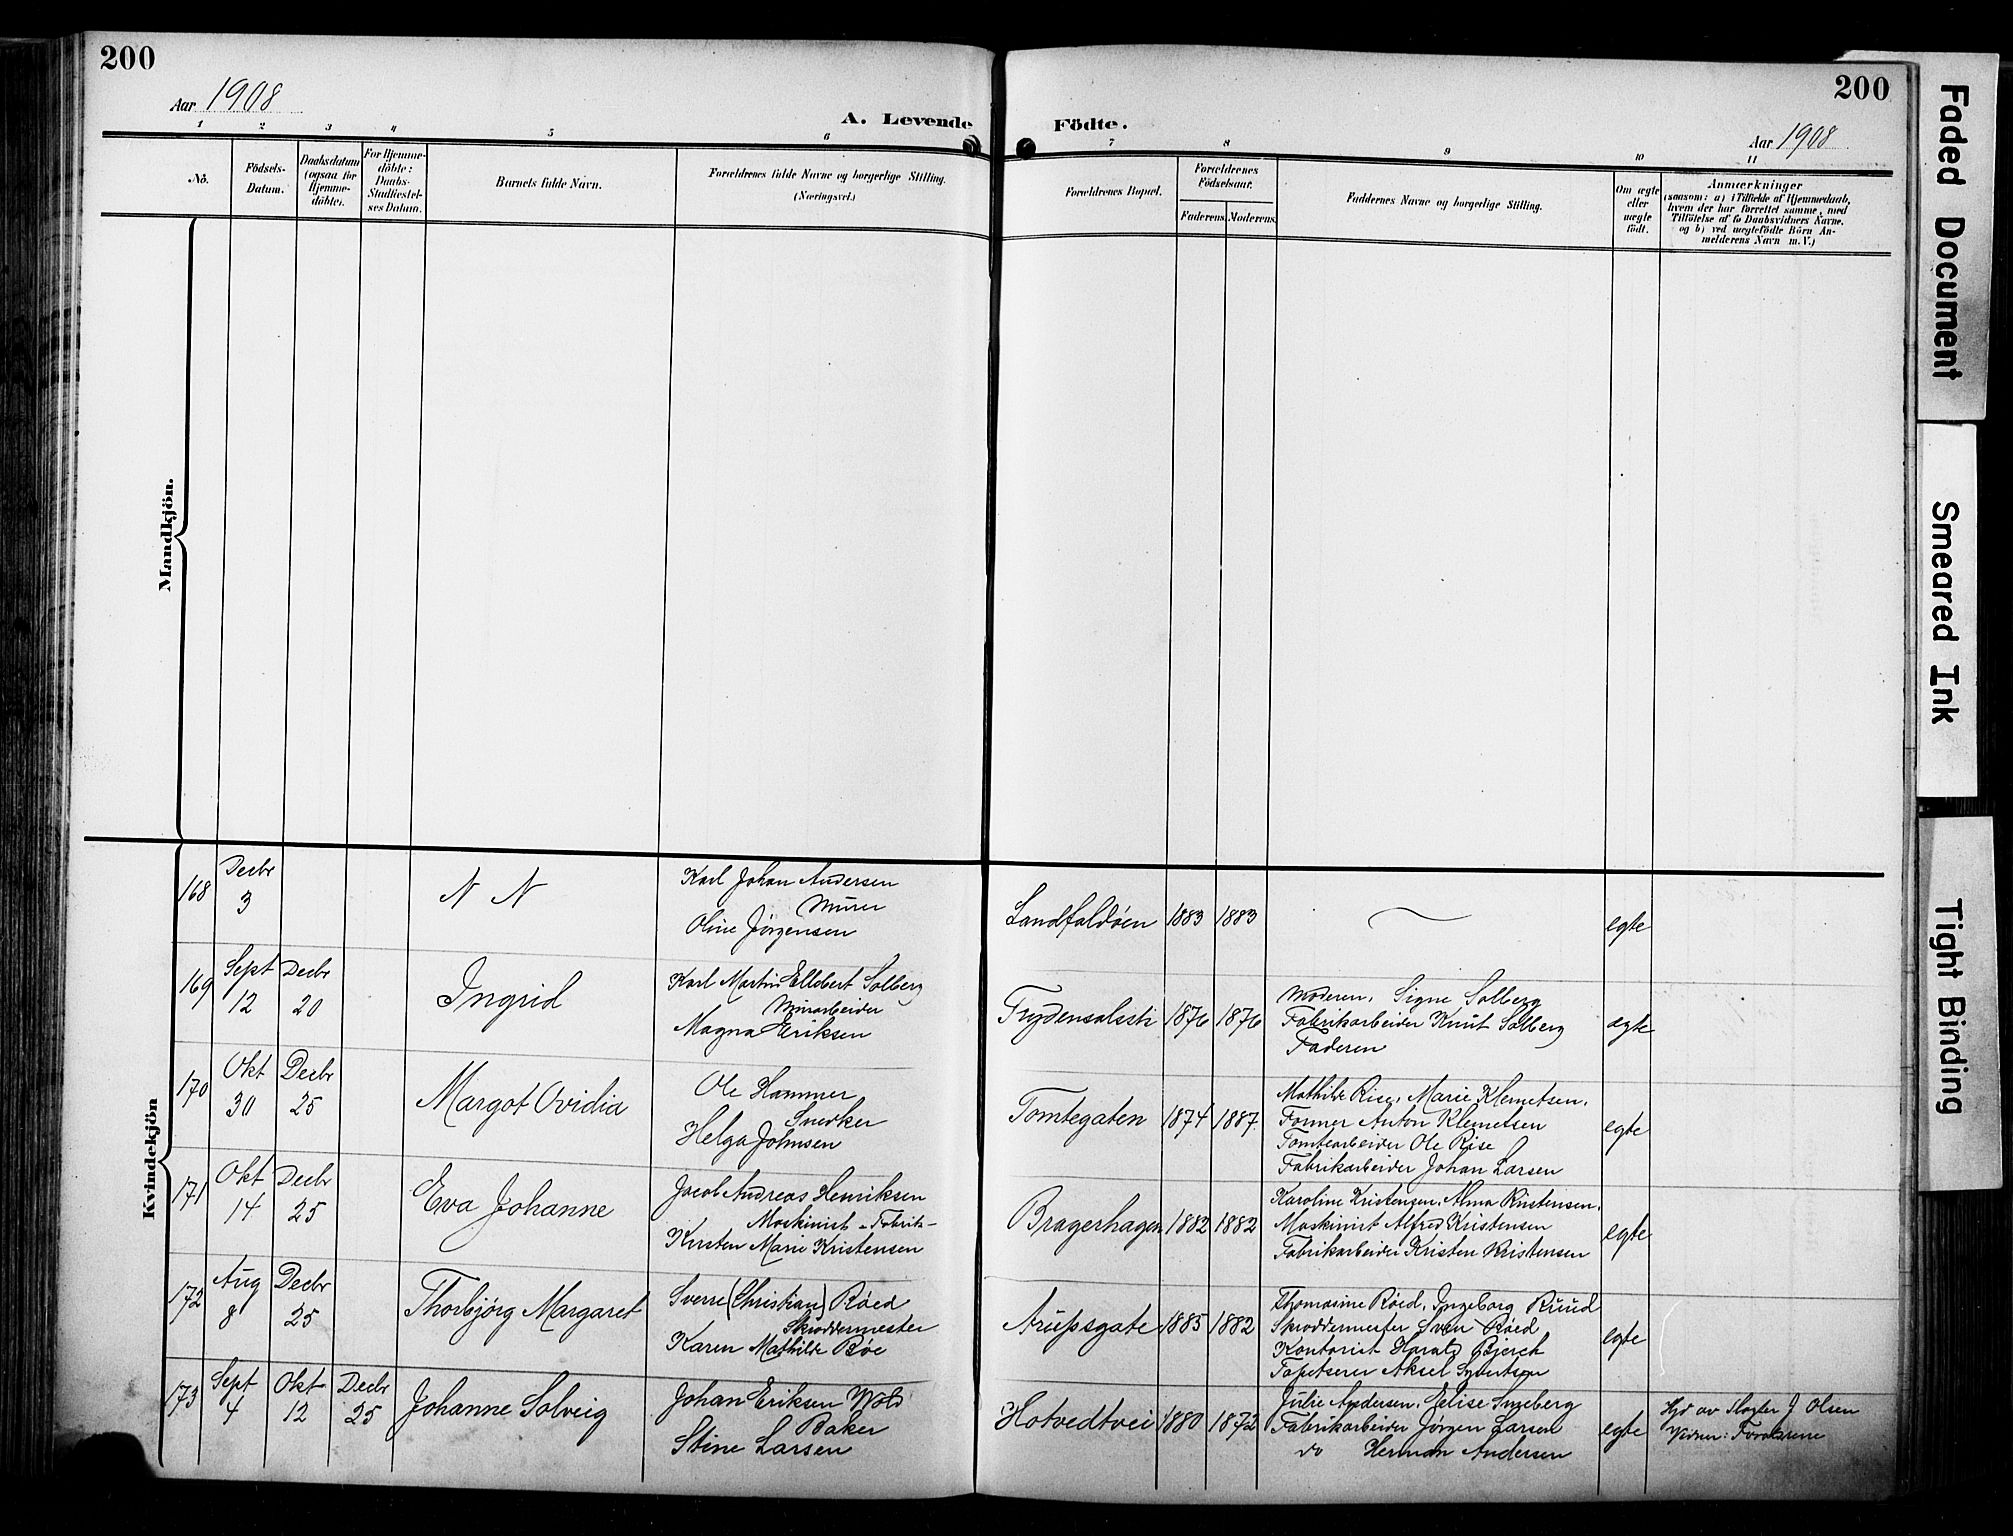 200
Aar 1908
A. Levende
1 2 3 4 5 6
Nö.
Födsels-
Datum.
Daabsdatum
(ogsaa för
Hjemme-
döbte).
For Hjemme-
döbte:
Daabs-
Stadfæstel-
ses Datum.
Barnets fulde Navn.
Forældrenes fulde Navne og borgerlige Stilling.
(Næringsvei.)
Mandkjön.
Kvindekjön
168 Decbr 3 N N
Karl Johan Andersen
Murer
Oline Jørgensen
169 Sept 12 Decbr 20 Ingrid
Karl Martin Ellebert Solberg
Murarbeider
Magna Eriksen
170 Okt 30 Decbr 25 Margot Ovidia
Ole Hammer
Snedker
Helga Johnsen
171 Okt 14 Decbr 25 Eva Johanne
Jacob Andreas Henriksen
Maskinist - Fabrik-
Kirsten Marie Kristensen
172 Aug 8 Decbr 25 Thorbjørg Margaret
Sverre (Christian) Røed
Skræddermester
Karen Mathilde Røe
173 Sept 4 Okt 12 Decbr 25 Johanne Solveig
Johan Eriksen Wold
Baker
Stine Larsen
200
Födte.
Aar 1908
7 8 9 10 11
Forældrenes Bopæl.
Forældrenes
Födselsaar.
Faderens. Moderens.
Faddernes Navne og borgerlige Stilling.
Om ægte
eller
uægte
födt.
Anmærkninger
(saasom: a) i Tilfælde af Hjemmedaab,
hvem der har forrettet samme, med
Tilföielse af to Daabsvidners Navne.
og b) ved uægtefödte Börn An-
melderens Navn m. V.)
Landfaldøen 1883 1883 egte
Frydendalssti 1876 1876
Moderen, Signe Solberg
Fabrikarbeider Knut Solberg
Faderen
ægte
Tomtegaten 1874 1887
Mathilde Rise, Marie Klemetsen,
Former Anton Klemetsen
Tomtearbeider Ole Rise
Fabrikarbeider Johan Larsen
egte
Bragerhagen 1882 1882
Karoline Kristensen, Alma Kristensen,
Maskinist Alfred Kristensen
Fabrikarbeider Kristen Kristensen
egte
Arupsgate 1885 1882
Thomasine Røed, Ingeborg Ruud
Skræddermester Sven Røed
Kontorist Harald Bjerck
Tapetserer Aksel Syvertsen
egte
Hotvedtvei 1880 1872
Julie Andersen, Elise Engeberg
Fabrikarbeider Jørgen Larsen
do Herman Andersen
egte
Hjd av J Olsen
Vidner: Forældrene
Faded Document
Smeared Ink
Tight Binding